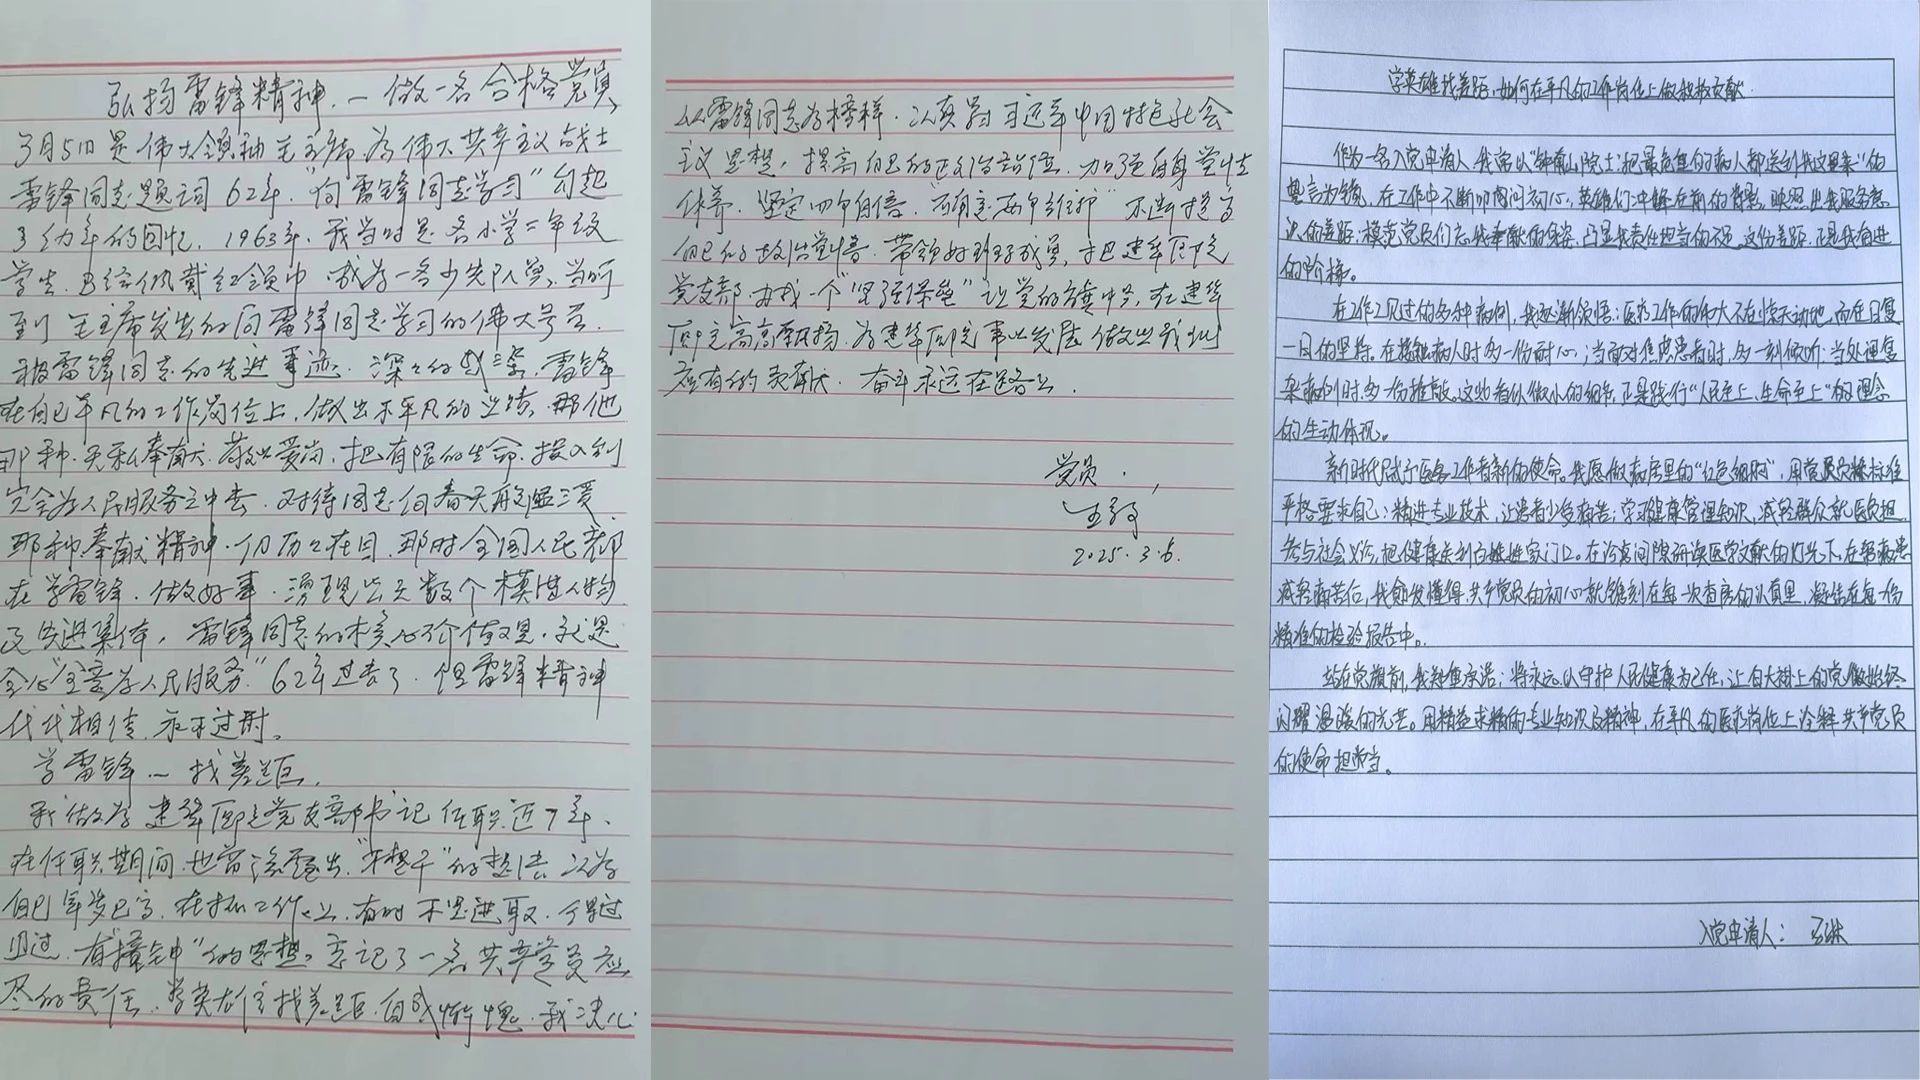 弘扬雷锋精神、一做一名合格党员
3月5日是伟大领袖毛主席为伟大共产主义战士
雷锋同志题词62年。"向雷锋同志学习"勾起
了幼年的回忆。1963年,我当时是名小学二年级
学生,已经佩戴红领巾,成为一名少先队员,当听
到毛主席发出的向雷锋同志学习的伟大号召.
被雷锋同志的先进事迹.深々的感染。雷锋
在自己平凡的工作岗位上,做出不平凡的业绩,那他
那种.无私奉献.敬业爱岗,把有限的生命.投入到
完全为人民服务之中去.对待同志向春天般温暖
那种奉献精神.仍历々在目.那时全国人民都
在学雷锋.做好事.涌现出无数个模范人物
及先进集体,雷锋同志的核心价值观.就是
全心"全意为人民服务"62年过去了.但雷锋精神
代代相传.永不过时.
学雷锋一找差距.
我做为建华医院党支部书记任职近7年.
在任职期间.也常流露出"不想干"的想法.认为
自己年岁已高.在抓工作上.有时不思进取.今得过
且过.有"撞钟"的思想。忘记了一名共产党员应
尽的责任.学英雄找差距.自感惭愧.我决心
以雷锋同志为榜样.认真学习习近平中国特色社会
主义思想,提高自己的政治站位.加强自身党性
休养.坚定四个自信."两个维护"不断提高
自己的政治觉悟.带领好班子成员,把建华医院
党支部.办成一个"坚强保垒"让党的旗帜,在建华
医院高高飘扬.为建华医院事业发展.做出我们
应有的贡献.奋斗永远在路上.
党员.
王毅
2025.3.6.
学英雄找差距,如何在平凡的工作岗位上做积极贡献
作为一名入党申请人,我常以"钟南山院士'把最危重的病人都送到我这里来'"的
誓言为镜,在工作中不断叩问初心。英雄们冲锋在前的背影,映照出我服务意
识的差距;模范党员们忘我奉献的身姿,凸显我责任担当的不足。这份差距,正是我奋进
的阶梯。
在工作工见过的各种病例,我逐渐领悟:医疗工作的伟大不在惊天动地,而在日复
一日的坚持。在接触病人时多一份耐心;当面对焦虑患者时,多一刻倾听;当处理复
杂病例时,多一份推敲。这些看似微小的细节,正是践行"人民至上、生命至上"的理念
的生动体现。
新时代赋予医务工作者新的使命。我愿做病房里的"红色细胞",用党员标准
严格要求自己:精进专业技术,让患者少受病苦;学习健康管理知识,减轻群众就医负担
参与社会义诊,把健康送到百姓家门口。在诊室间隙研读医学文献的灯光下,在帮病患
减轻病苦后,我愈发懂得,共产党员的初心就镌刻在每一次查房的认真里,凝结在每一份
精准的检验报告中。
站在党旗前,我郑重承诺:将永远以守护人民健康为己任,让白大褂上的党徽始终
闪耀温暖的光芒。用精益求精的专业知识及精神,在平凡的医疗岗位上诠释共产党员
的使命担当。
入党申请人: